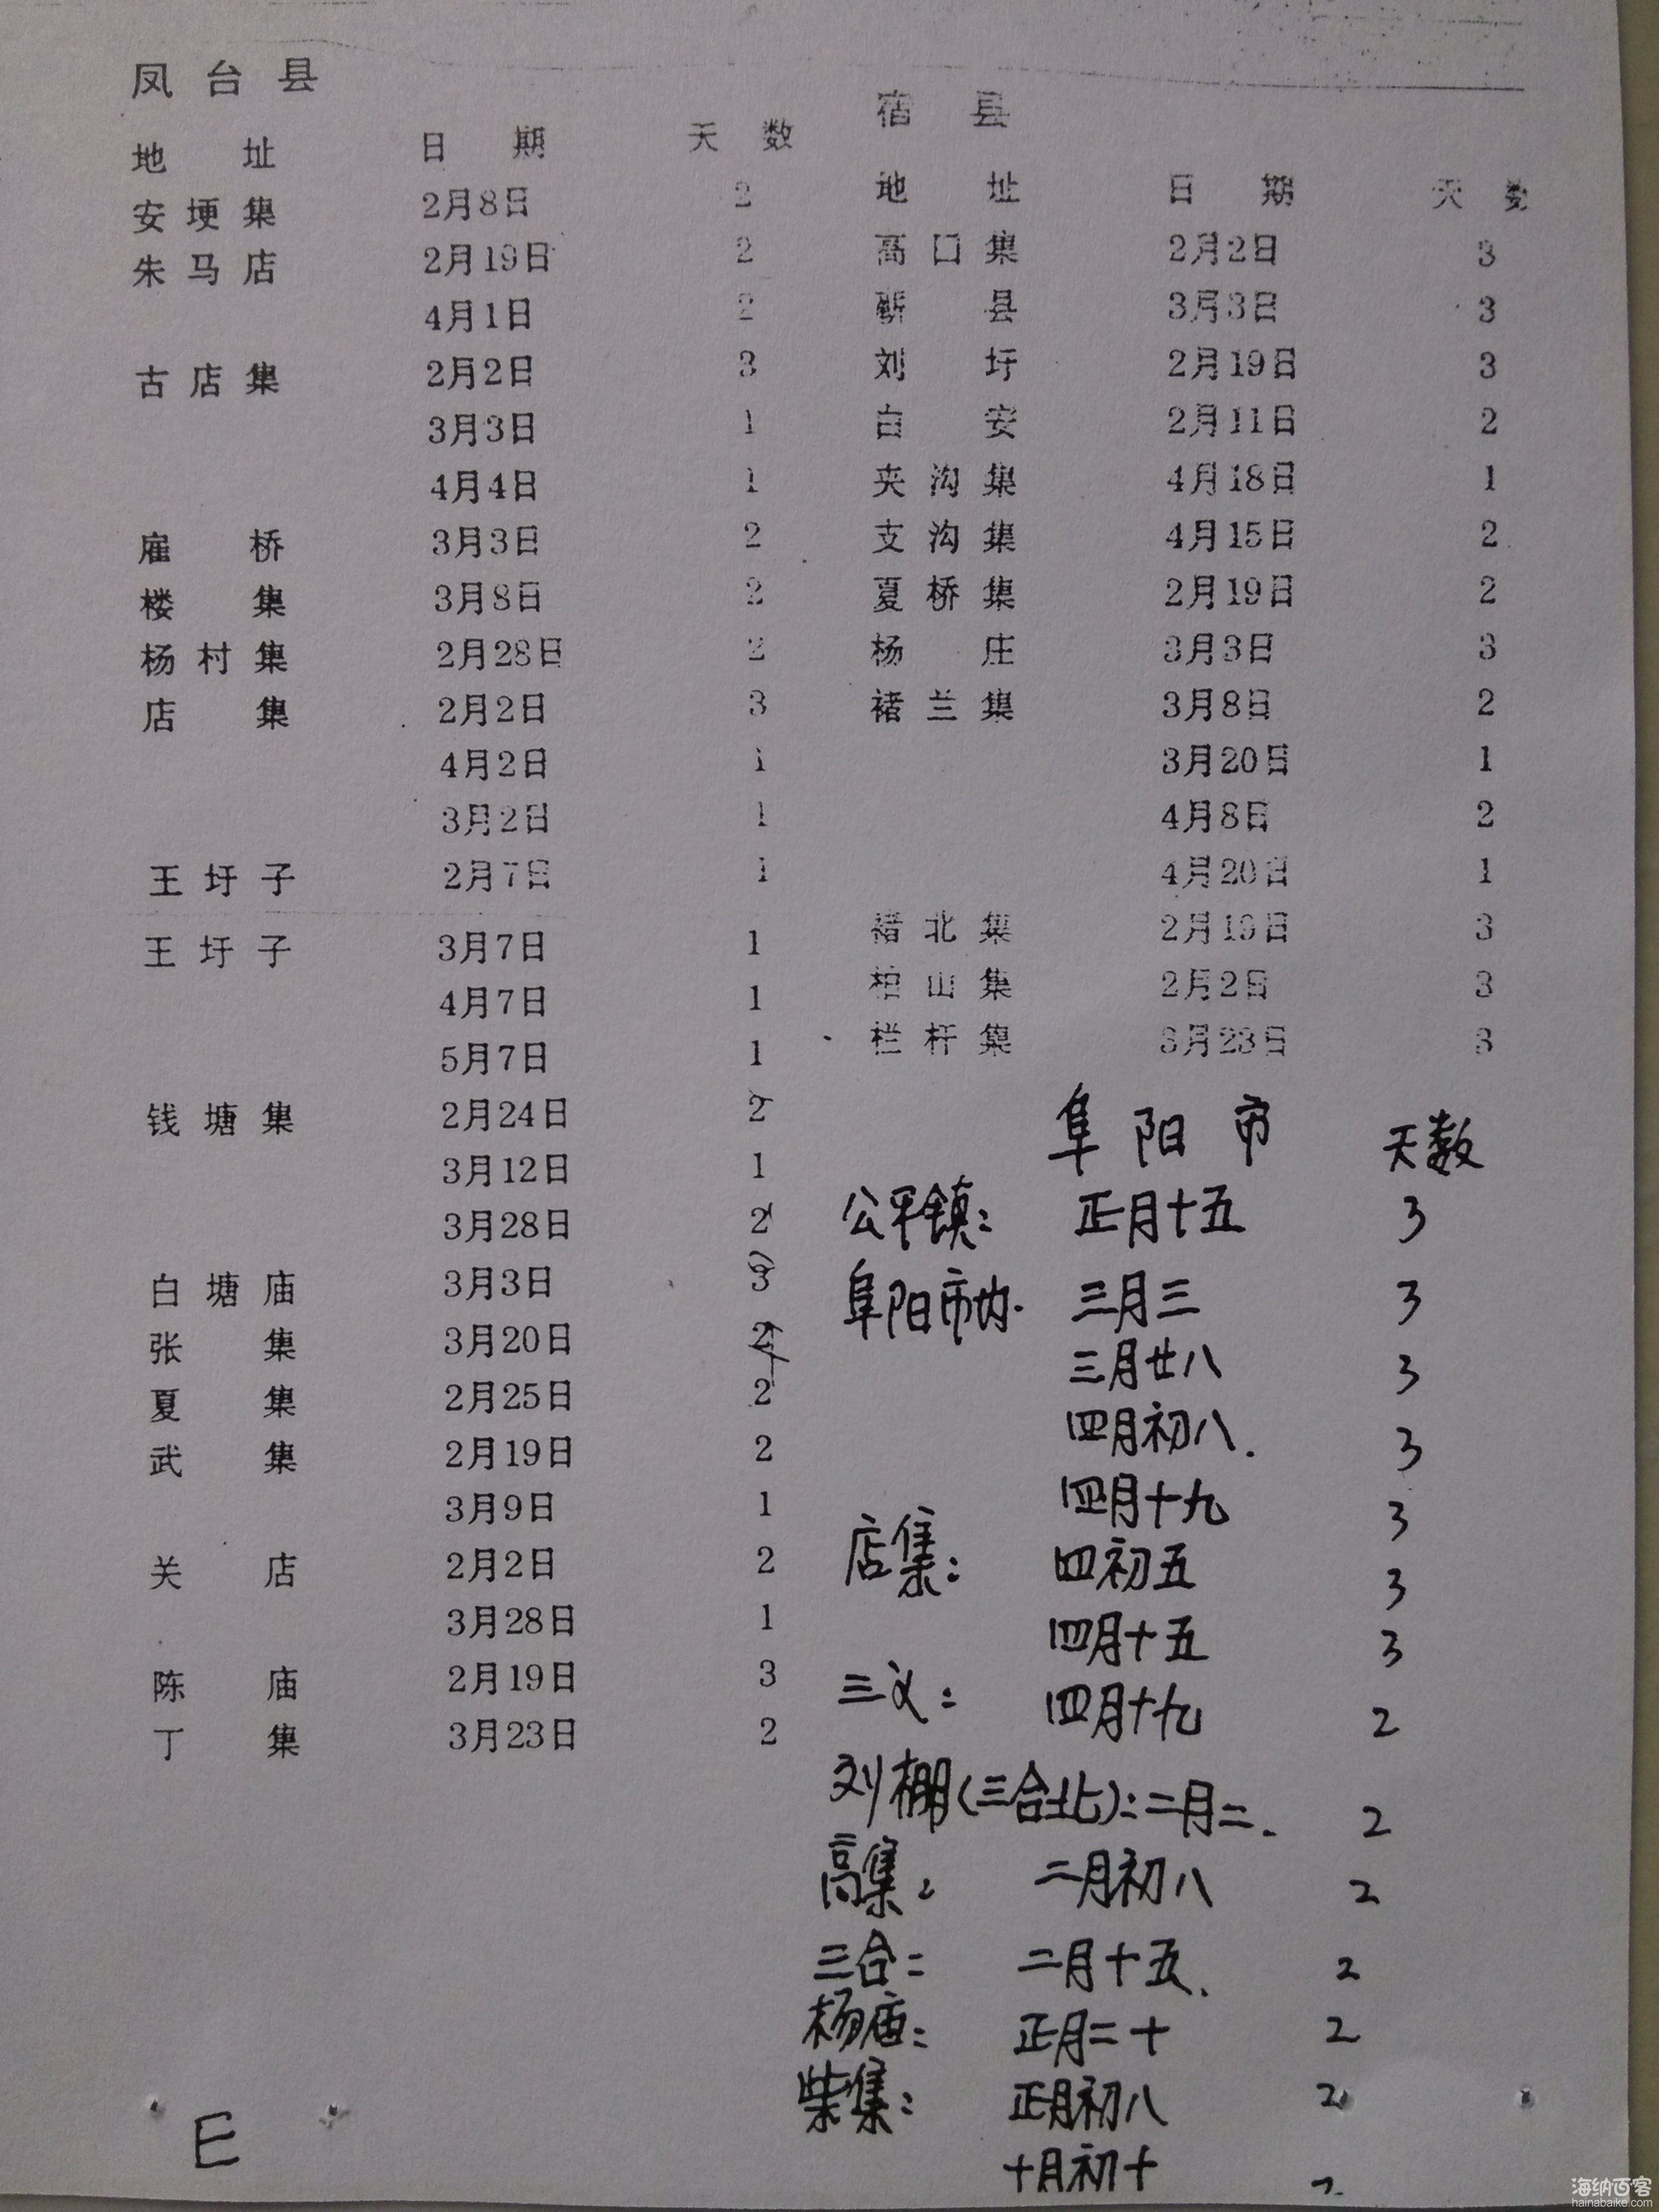 凤台县
地址 日期 天数
安埂集 2月8日 2
朱马店 2月19日 2
4月1日 2
古店集 2月2日 3
3月3日 1
4月4日 1
雇桥 3月3日 2
楼集 3月8日 2
杨村集 2月28日 2
店集 2月2日 3
4月2日 1
3月2日 1
王圩子 2月7日 1
王圩子 3月7日 1
4月7日 1
5月7日 1
钱塘集 2月24日 2
3月12日 1
3月28日 2
白塘庙 3月3日 3
张集 3月20日 2
夏集 2月25日 2
武集 2月19日 2
3月9日 1
关店 2月2日 2
3月28日 1
陈庙 2月19日 3
丁集 3月23日 2
E
宿县
地址 日期 天数
高口集 2月2日 3
蕲县 3月3日 3
刘圩 2月19日 3
白安 2月11日 2
夹沟集 4月18日 1
支沟集 4月15日 2
夏桥集 2月19日 2
杨庄 3月3日 3
褚兰集 3月8日 2
3月20日 1
4月8日 2
4月20日 1
褚北集 2月19日 3
柏山集 2月2日 3
栏杆集 3月23日 3
阜阳市 天数
公平镇: 正月十五 3
阜阳市内. 三月三 3
三月廿八 3
四月初八. 3
四月十九 3
店集: 四初五 3
四月十五 3
三义: 四月十九 2
刘棚(三合北):二月二. 2
高集: 二月初八 2
三合: 二月十五. 2
杨庙: 正月二十 2
柴集: 正月初八 2
十月初十 2
海纳百客
hainabaike.com